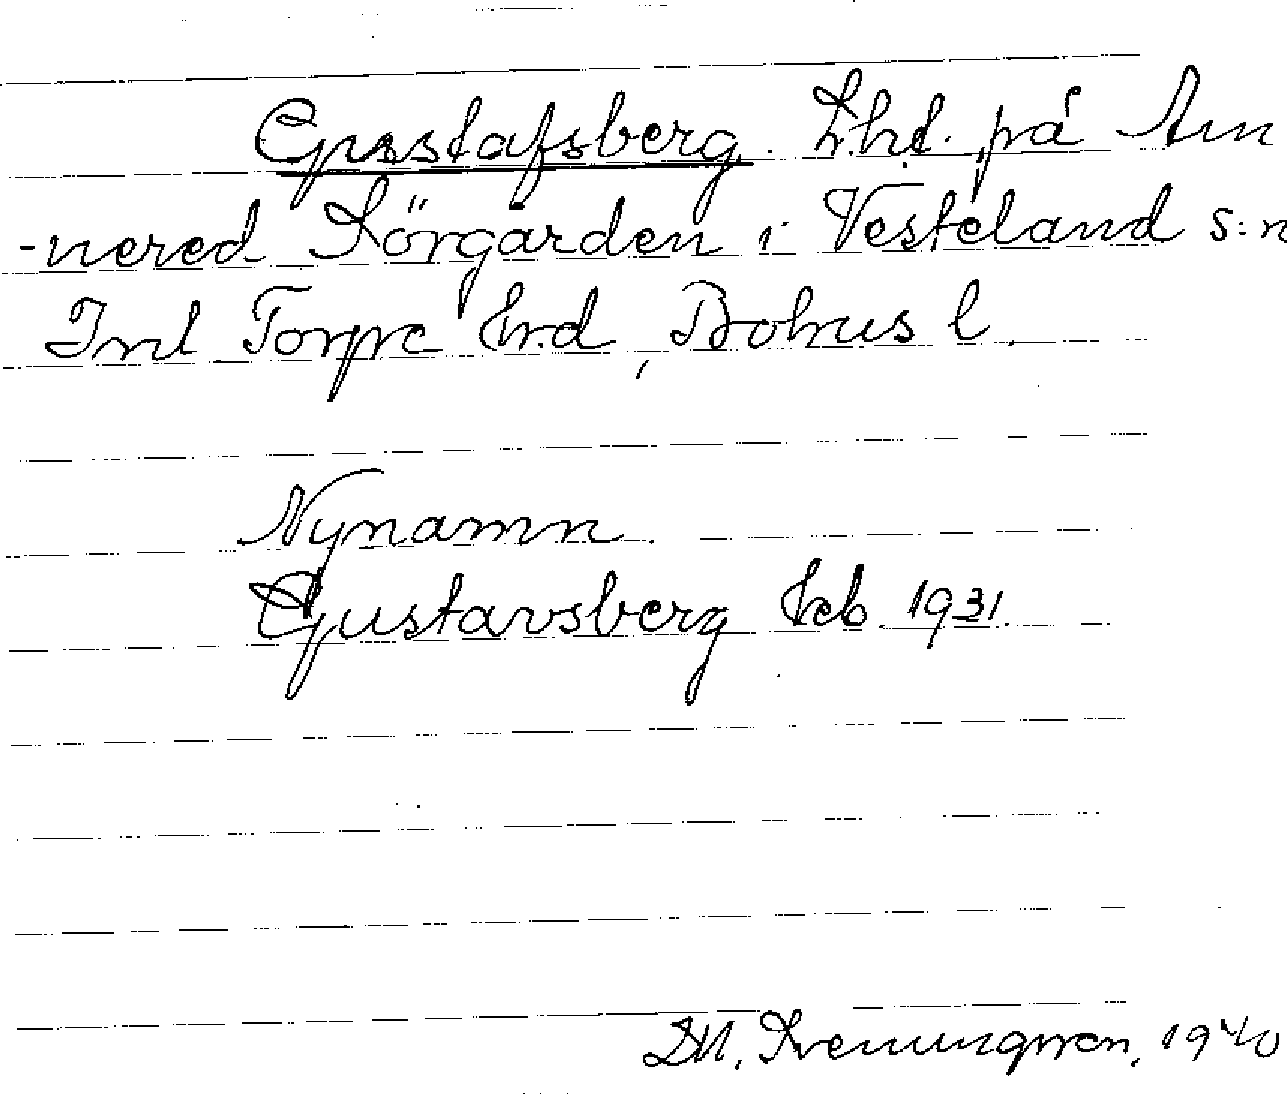 Gusstafsberg. Lht. på Am
-nered Körgården i Vesteland s:n
Inl Torpe Hrd, Bohus l.
Nynamn.
Gustavsberg Jeb 1931.
1940